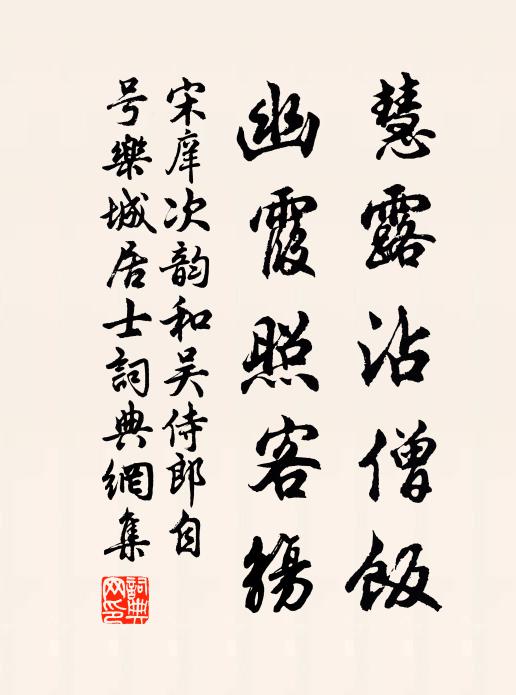 慧露沾僧飯
幽霞照客觴
宋庠次韵和吴侍郎自
号樂城居士詞典網集
詞典網印